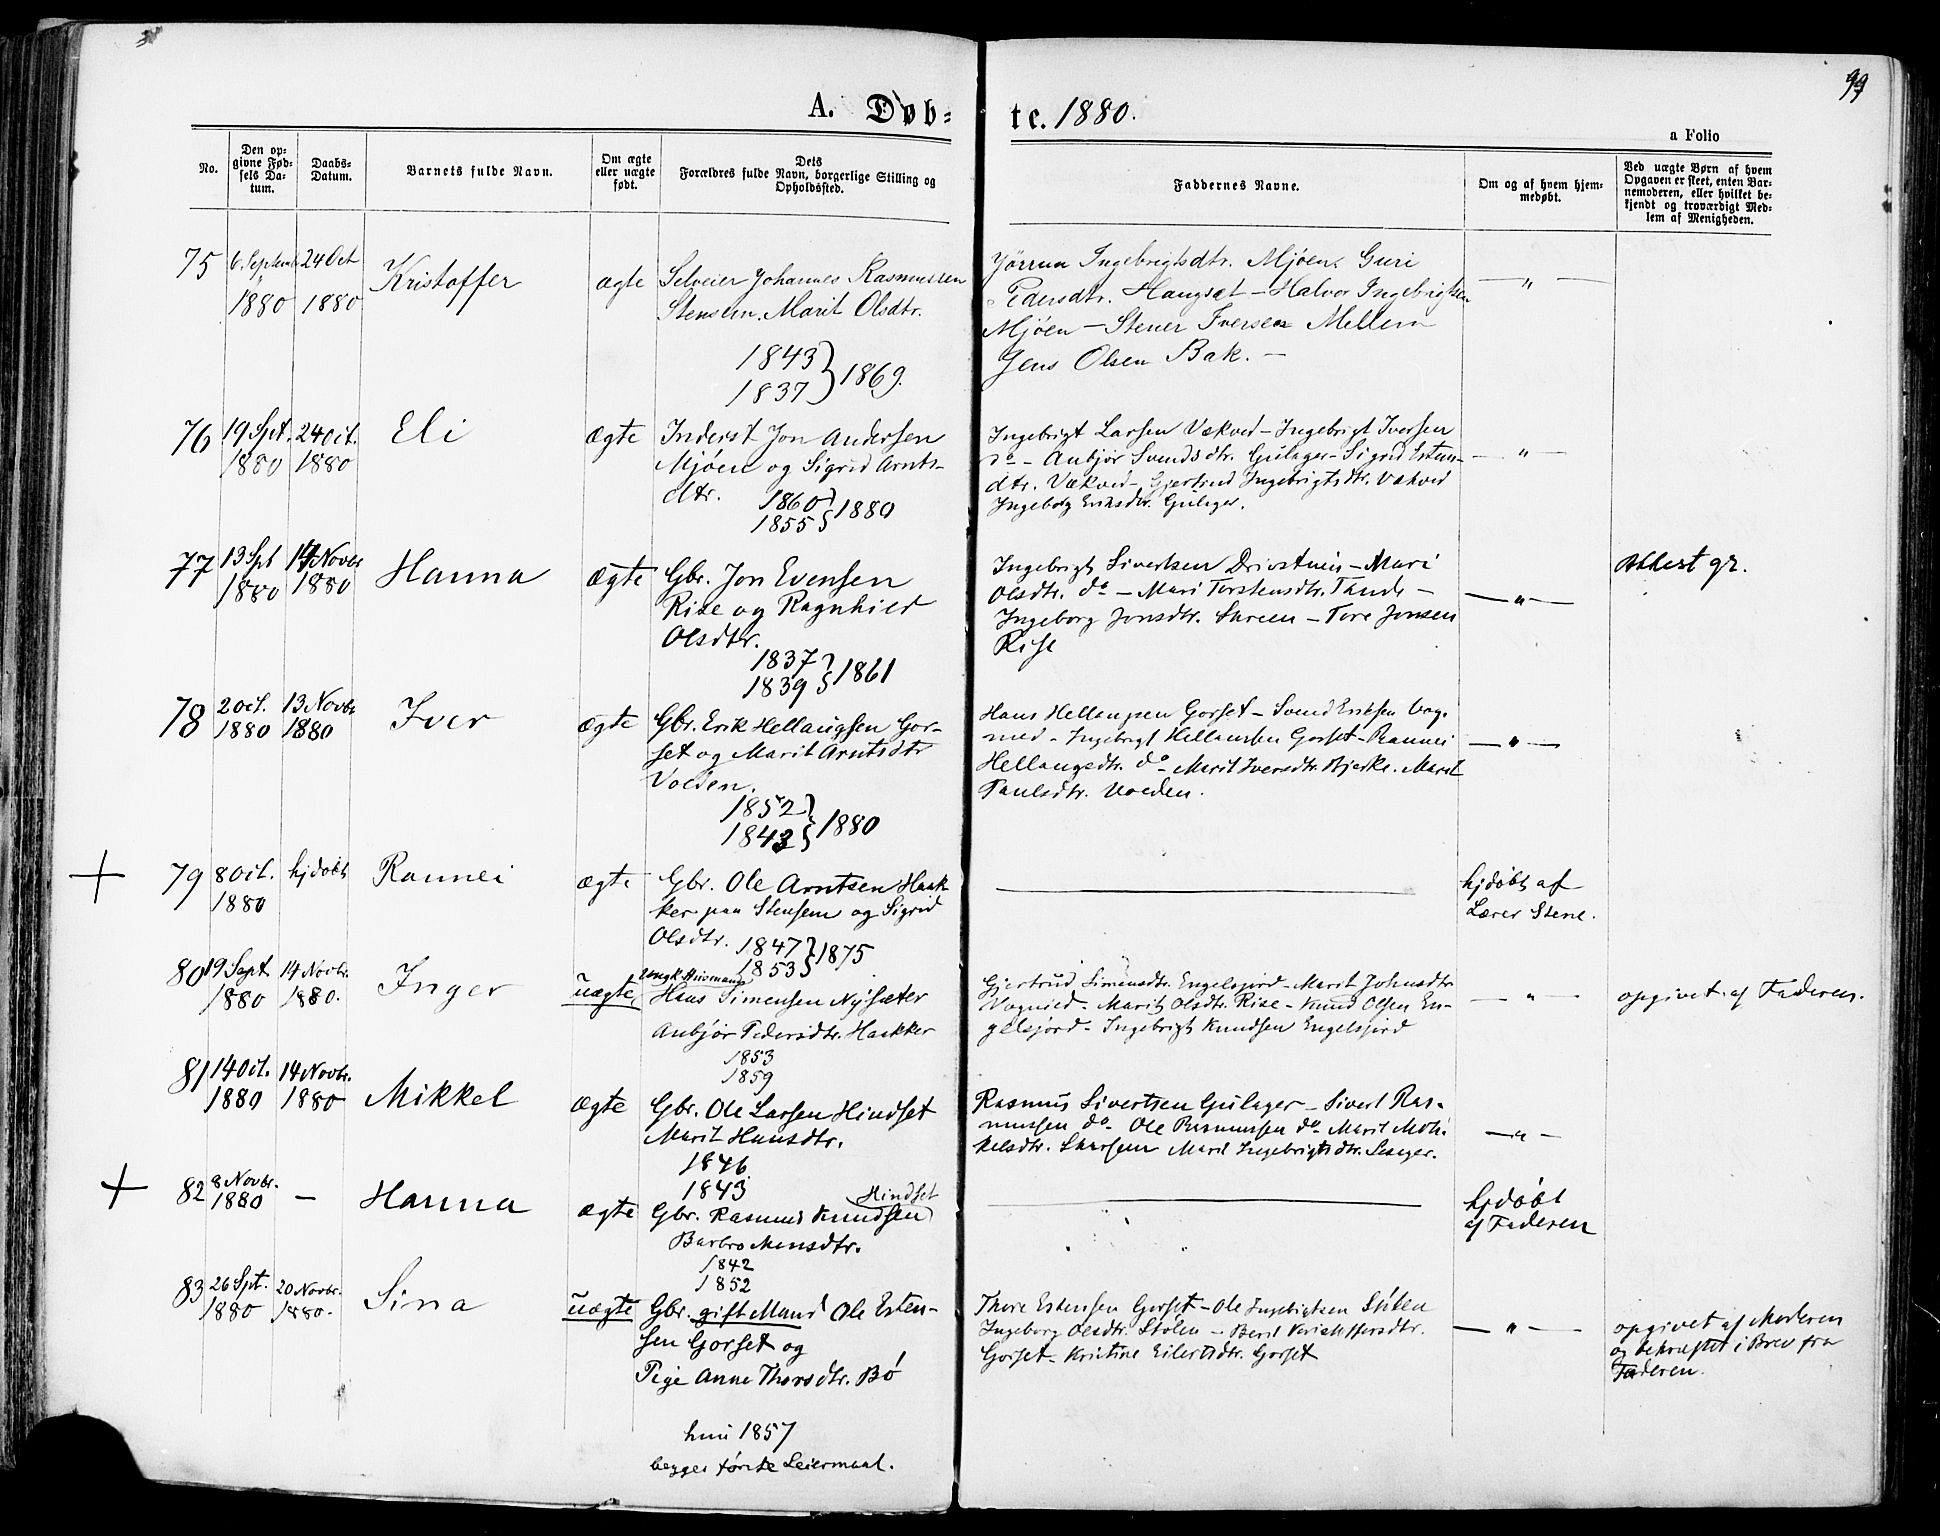 99
A. Døb=
te. 1880.
a Folio
No.
Den op-
givne Fød-
sels Da-
tum.
Daabs-
Datum.
Barnets fulde Navn.
Om ægte
eller uægte
født.
Dets
Forældres fulde Navn, borgerlige Stilling og
Opholdssted.
Faddernes Navne.
Om og af hvem hjem-
medøbt.
Ved uægte Børn af hvem
Opgaven er skeet, enten Bar-
nemoderen, eller hvilket be-
kjendt og troværdigt Med-
lem af Menigheden.
75
6. Septemb
1880
24 Oct
1880
Kristoffer
ægte
Selveier Johannes Rasmussen
Stensem. Marit Olsdtr.
1843
1837 } 1869.
Jörrun Ingebrigtsdtr. Mjøen. Guri
Pedersdtr. Haugset - Halvor Ingebrigtsen
Mjöen - Stener Iversen Mellem
Jens Olsen Bak. -
— " —
76
19 Spt.
1880
24 Oct.
1880
Eli
ægte
Inderst Jon Andersen
Mjøen og Sigrid Arnts-
dtr.
1860
1855 } 1880
Ingebrigt Larsen Vækved - Ingebrigt Iversen
do - Anbjør Svendsdtr. Gulager - Sigrid Esten-
dtr. Vækved - Gjertrud Ingebrigtsdtr. Vækved
Ingeborg Eriksdtr. Gulager.
— " —
77
13 Spt
1880
14 Novbr
1880
Hanna
ægte
Gbr. Jon Evensen
Rise og Ragnhild
Olsdtr.
1837
1839 } 1861
Ingebrigt Sivertsen Drivstuen - Mari
Olsdtr. do - Mari Torstensdtr. Tande -
Ingeborg Jonsdtr. - Tore Jonsen
Rise
— " —
Attest gr.
78
2 Oct.
1880
13 Novbr
1880
Iver
ægte
Gbr. Erik Hellaugsen Gor-
set og Marit Arntsdtr
Volden.
1852
1843 } 1880
Hans Hellaugsen Gorset - Svend Eriksen Vog-
nied - Ingebrigt Hellaugsen Gorset - Rannei
Hellaugsdtr. do - Marit Iversdtr. Bjerke. Marit
Paulsdtr. Volden.
— " —
79
8 Oct.
1880
hjdøbt
Rannei
ægte
Gbr. Ole Arntsen Haak-
ker paa Stensem og Sigrid
Olsdtr.
1847
1853 } 1875
hjdøbt af
Lærer Stene.
80
19 Sept
1880
14 Novbr.
1880.
Inger
uægte
Ungk. Huusmand
Hans Simensen Nysæter
Anbjör Pedersdtr. Haakker
1853
1859
Gjertrud Simensdtr. Engelsjord - Marit Johnsdtr
Vognied - Marit Olsdtr. Rise - Knud Olsen En-
gelsjord - Ingebrigt Knudsen Engelsjord
— " —
opgivet af Faderen.
81
14 Oct.
1880
14 Novbr.
1880
Mikkel
ægte
Gbr. Ole Larsen Hindset
Marit Hansdtr.
1846
1843
Rasmus Sivertsen Gulager - Sivert Ras-
mussen do - Ole Rasmussen do - Marit Mik-
kelsdtr. Skarsem Marit Ingebrigtsdtr.
— " —
82
8 Novbr.
1880
—
Hanna
ægte
Hindset
Gbr. Rasmus Knudsen
Barbro Monsdtr.
1842
1852
hjdøbt
af Faderen
83
26 Spt.
1880
20 Novbr.
1880.
Sina
uægte
Gbr. gift Mand Ole Esten-
sen Gorset og
Pige Anne Thorsdtr. Bö
hun 1857
begges første Leiermaal.
Thore Estensen Gorset - Ole Ingebrigtsen Stölen
Ingeborg Olsdtr. Stölen - Berit Kristoffersdtr.
Gorset - Kristine Eilertsdtr. Gorset
— " —
opgivet af Moderen
og bekræftet i Brev fra
Faderen.